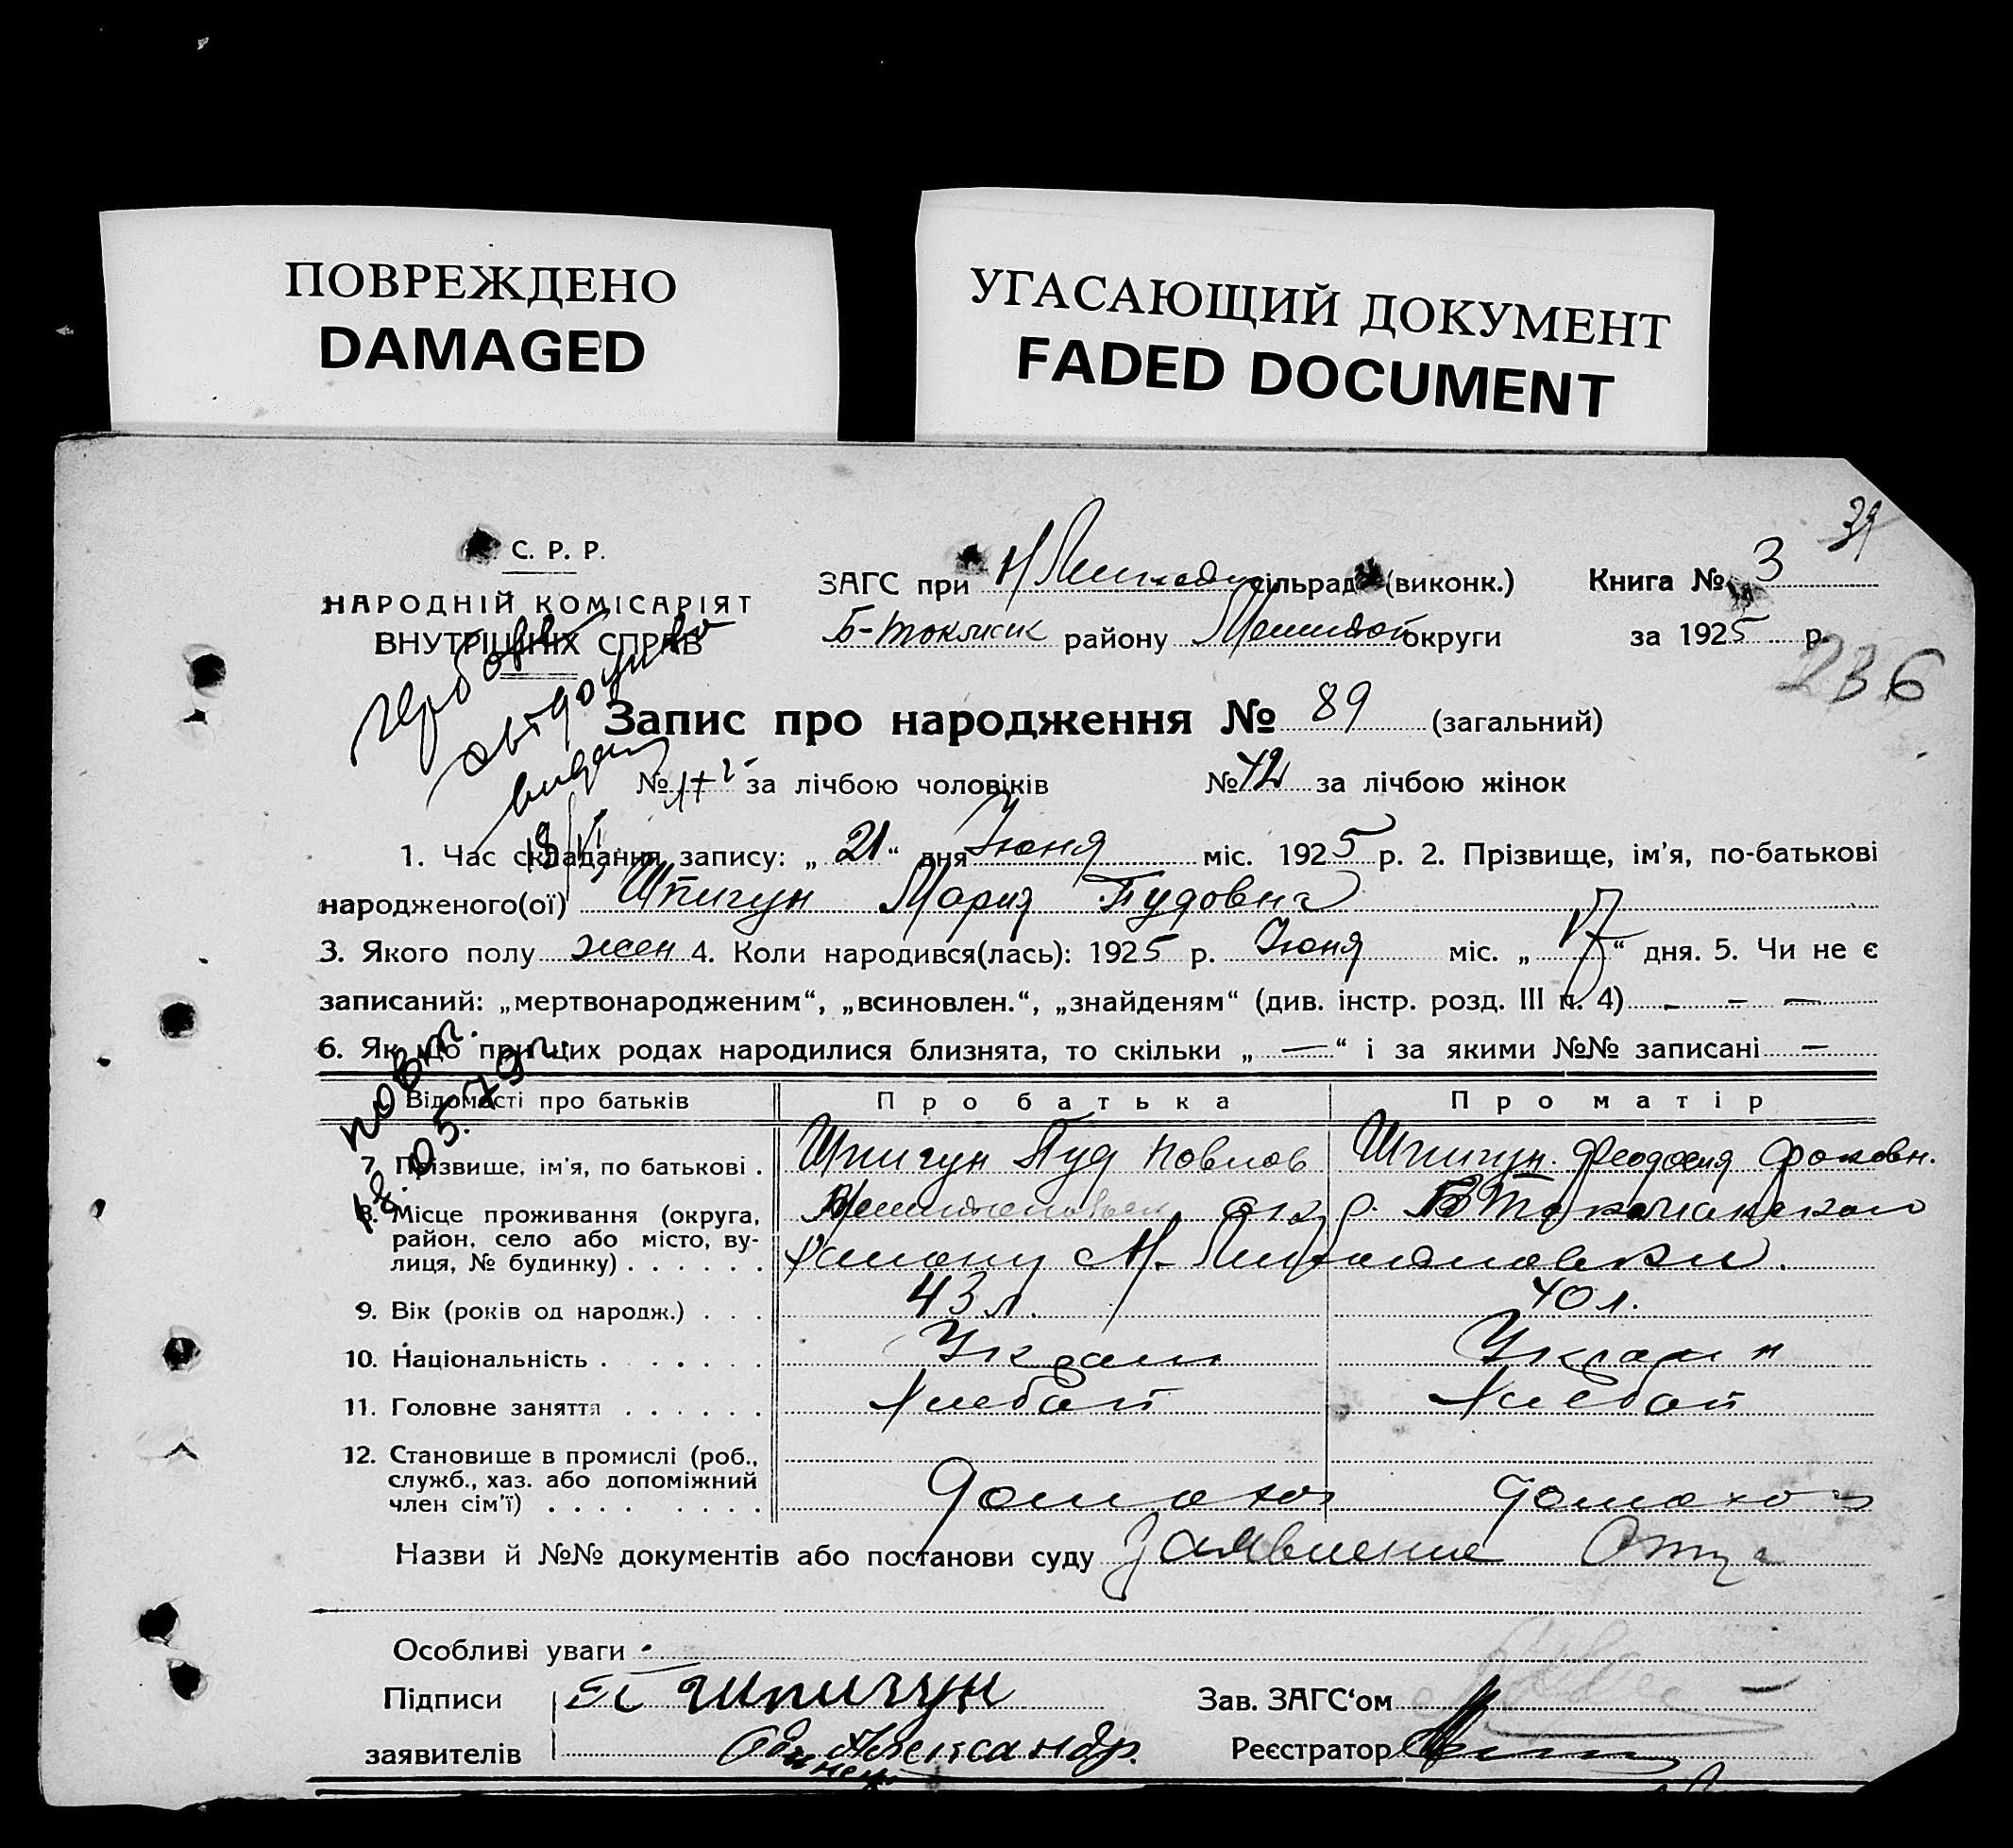 ПОВРЕЖДЕНО
DAMAGED
УГАСАЮЩИЙ ДОКУМЕНТ
FADED DOCUMENT
39
С. Р. Р.
НАРОДНІЙ КОМІСАРІЯТ
ВНУТРІШНІХ СПРАВ
ЗАГС при сільрад (виконк.) Книга № 3
Б-Токмкск району округи за 1925 р.
236
Запис про народження № 89 (загальний)
№ 47 за лічбою чоловіків № 42 за лічбою жінок
1. Час складання запису: „ 21 “ дня Июня міс. 1925 р. 2. Прізвище, ім'я, по-батькові
народженого(ої) Шпигун Мария Пудовна
3. Якого полу жен 4. Коли народився(лась): 1925 р. Июня міс. „ 17 “ дня. 5. Чи не є
записаний: „мертвонародженим“, „всиновлен.“, „знайденям“ (див. інстр. розд. III п. 4) - – —
6. Як що при цих родах народилися близнята, то скільки „ — “ і за якими №№ записані —
повт.
12.05.79г.
Відомості про батьків Про батька Про матір
7. Прізвище, ім'я, по батькові . Шпигун Пуд Павлов Шпигун Феодосия Фоковн.
8. Місце проживання (округа,
район, село або місто, ву-
лиця, № будинку) . . . . . .
9. Вік (років од народж.) . . . 43 л. 40 л.
10. Національність . . . . . . . Украин Украин
11. Головне заняття . . . . . . Хлебоп Хлебоп
12. Становище в промислі (роб.,
служб., хаз. або допоміжний
член сім'ї) . . . . . . . . домохоз домохоз
Назви й №№ документів або постанови суду Заявление Отца
Особливі уваги
Підписи П Шпигун Зав. ЗАГС‘ом
заявителів Александр. Реєстратор